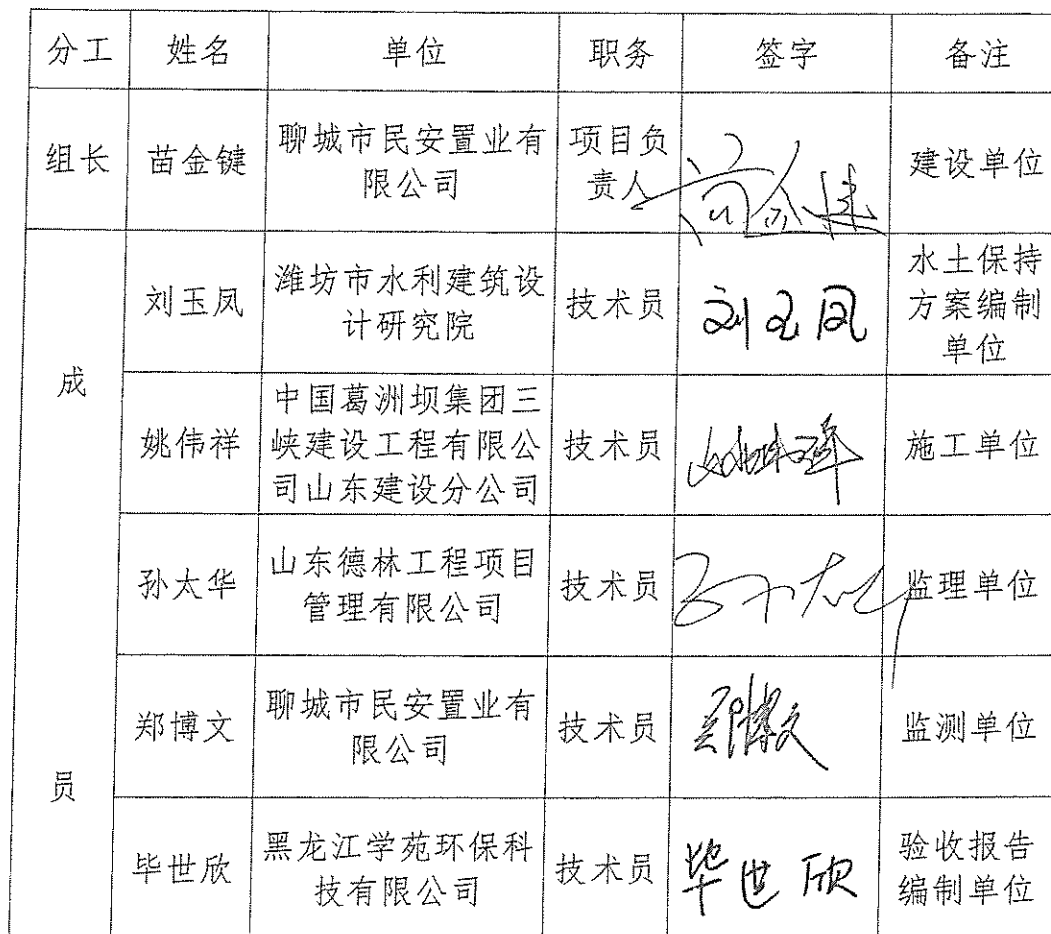 分工 姓名 单位 职务 签字 备注
组长 苗金键 聊城市民安置业有限公司 项目负责人 建设单位
成员
刘玉凤 潍坊市水利建筑设计研究院 技术员 刘玉凤 水土保持方案编制单位
姚伟祥 中国葛洲坝集团三峡建设工程有限公司山东建设分公司 技术员 施工单位
孙太华 山东德林工程项目管理有限公司 技术员 孙太华 监理单位
郑博文 聊城市民安置业有限公司 技术员 郑博文 监测单位
毕世欣 黑龙江学苑环保科技有限公司 技术员 毕世欣 验收报告编制单位